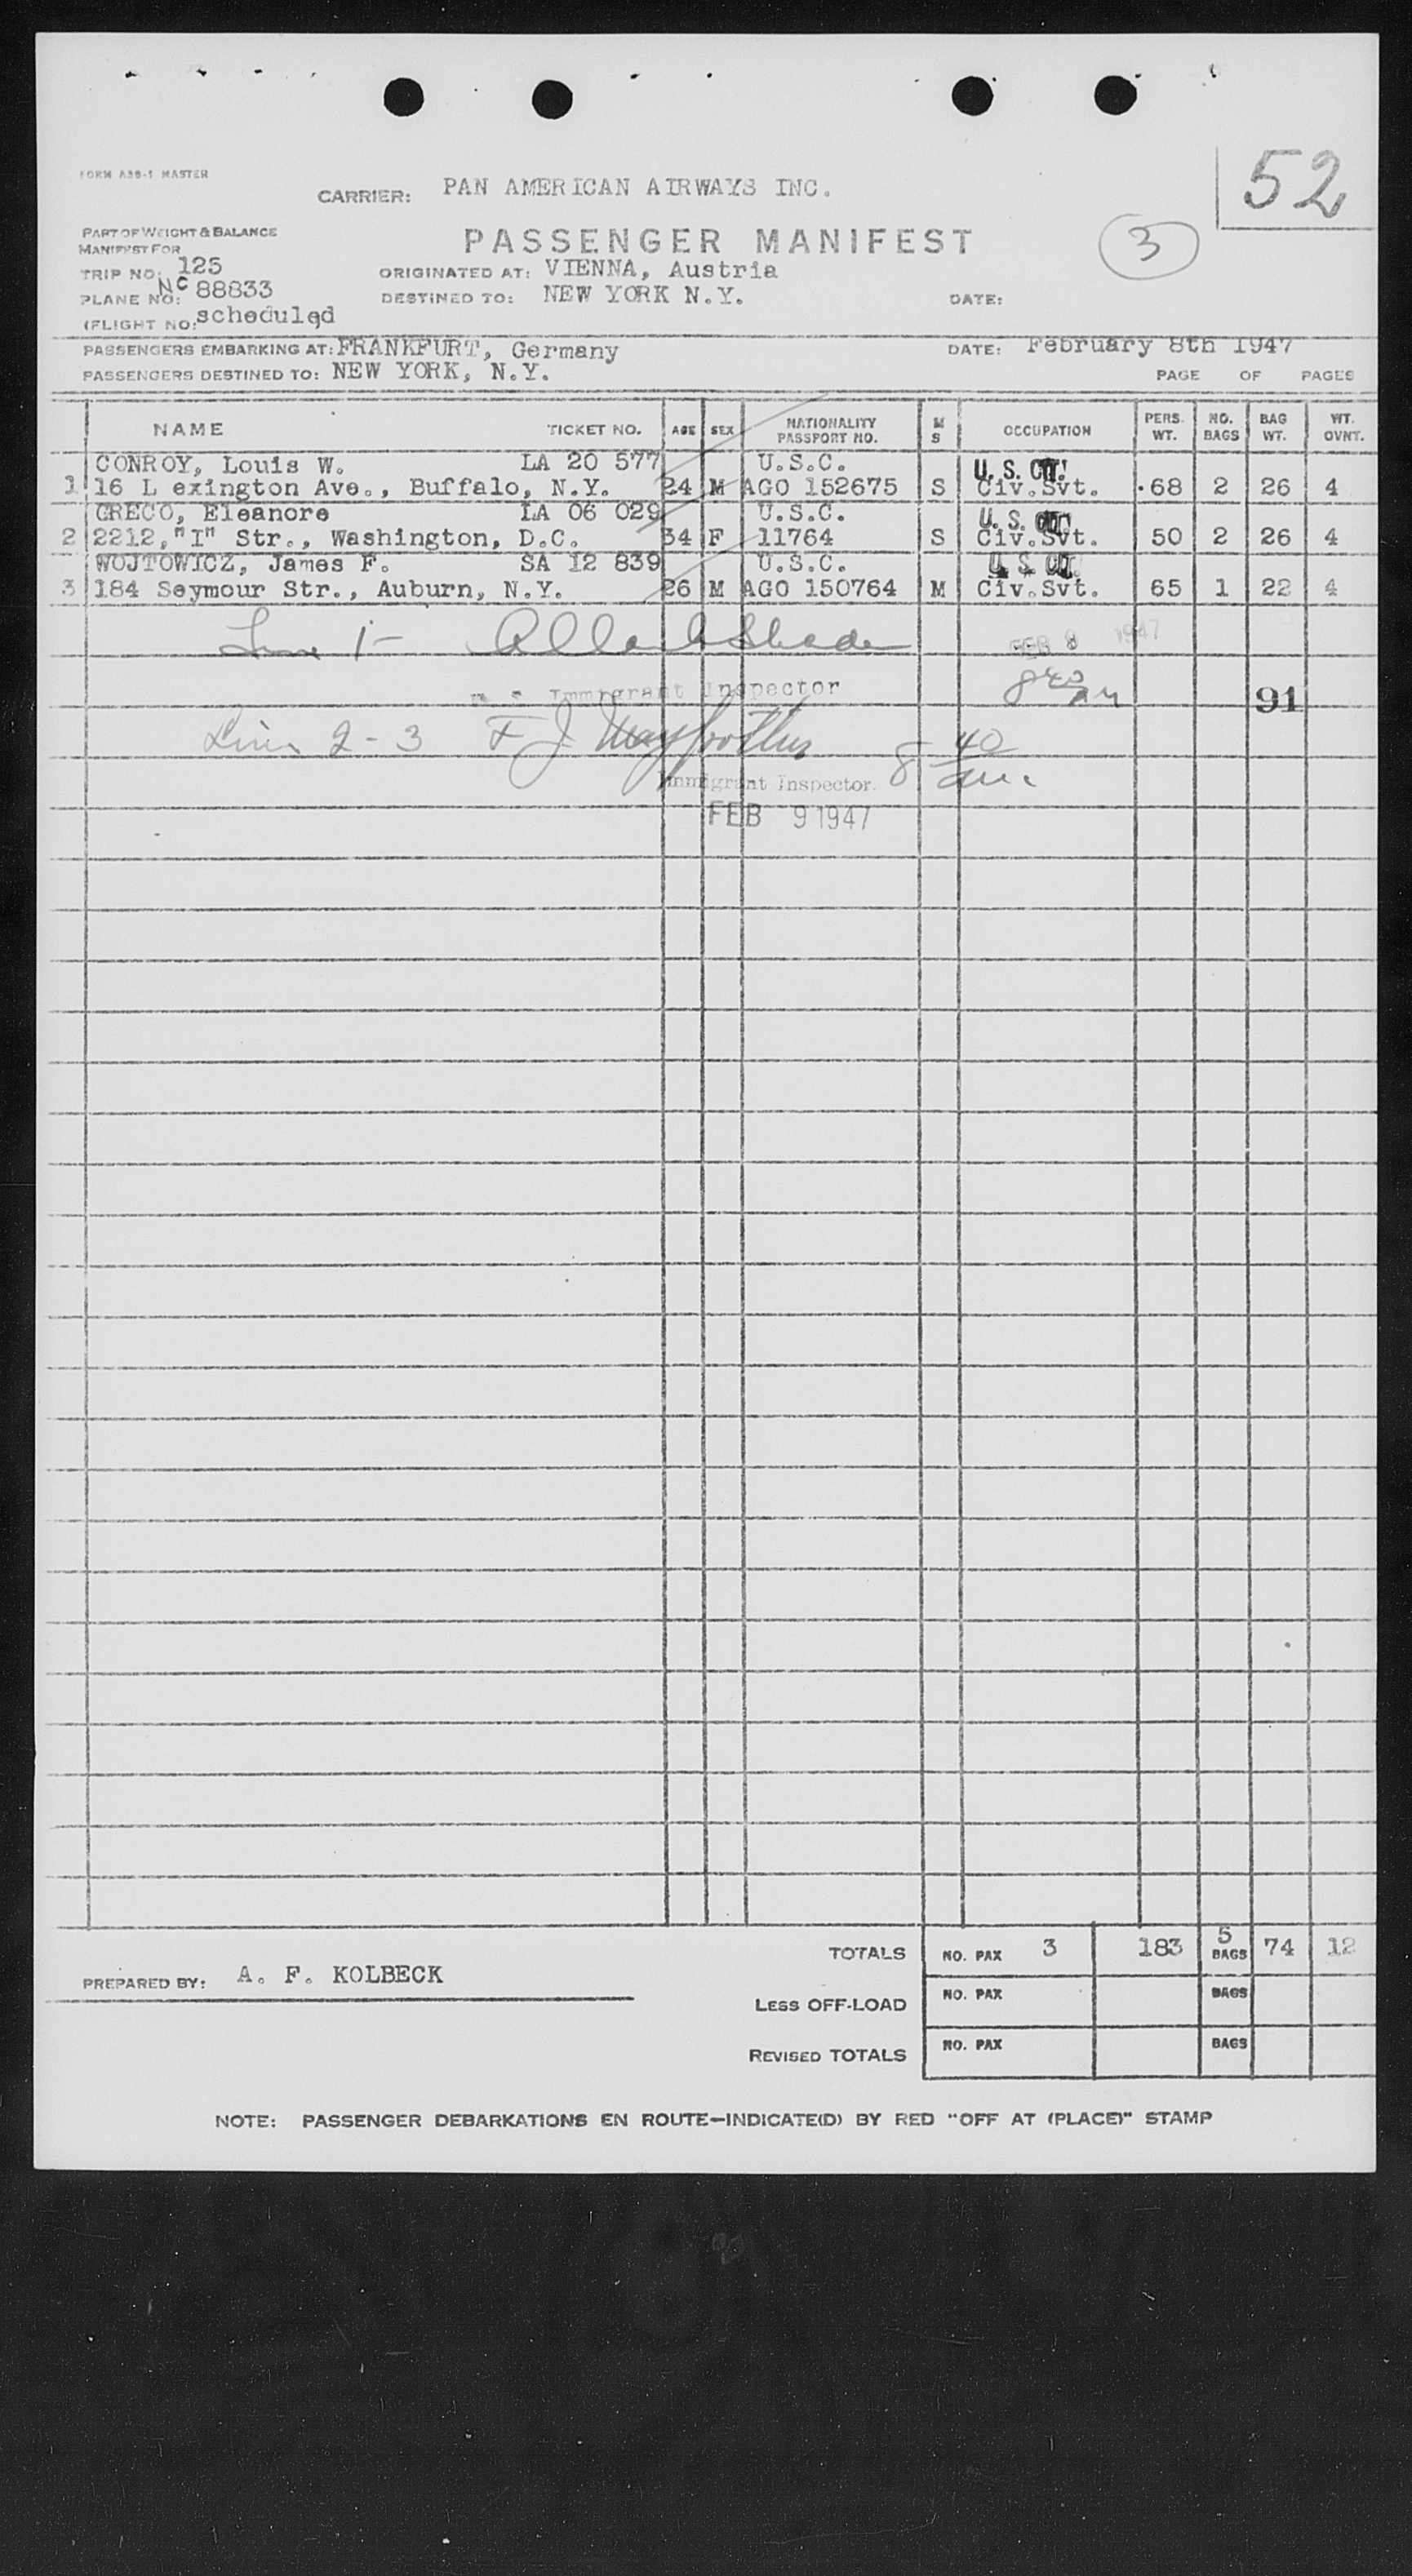 52
FORM A38-1 MASTER
CARRIER: PAN AMERICAN AIRWAYS INC.
PART OF WEIGHT & BALANCE
MANIFEST FOR
PASSENGER MANIFEST
3
TRIP NO: 125
ORIGINATED AT: VIENNA, Austria
PLANE NO: NC 88833
DESTINED TO: NEW YORK N.Y.
DATE:
(FLIGHT NO: scheduled
PASSENGERS EMBARKING AT: FRANKFURT, Germany
DATE: February 8th 1947
PASSENGERS DESTINED TO: NEW YORK, N.Y.
PAGE OF PAGES
NAME TICKET NO. AGE SEX NATIONALITY PASSPORT NO. M S OCCUPATION PERS. WT. NO. BAGS BAG WT. WT. OVNT.
CONROY, Louis W. LA 20 577 U.S.C. U.S. CIT.
1 16 L exington Ave., Buffalo, N.Y. 24 M AGO 152675 S Civ.Svt. 68 2 26 4
GRECO, Eleanore LA 06 029 U.S.C. U.S. CIT.
2 2212,"I" Str., Washington, D.C. 34 F 11764 S Civ.Svt. 50 2 26 4
WOJTOWICZ, James F. SA 12 839 U.S.C. U.S. CIT.
3 184 Seymour Str., Auburn, N.Y. 26 M AGO 150764 M Civ.Svt. 65 1 22 4
Line 1 -
FEB 8 1947
Immigrant Inspector
8 40 am
91
Lines 2 - 3 F J
8 40 am.
Immigrant Inspector.
FEB 9 1947
TOTALS NO. PAX 3 183 5 BAGS 74 12
PREPARED BY: A. F. KOLBECK
LESS OFF-LOAD NO. PAX BAGS
REVISED TOTALS NO. PAX BAGS
NOTE: PASSENGER DEBARKATIONS EN ROUTE-INDICATE(D) BY RED "OFF AT (PLACE)" STAMP